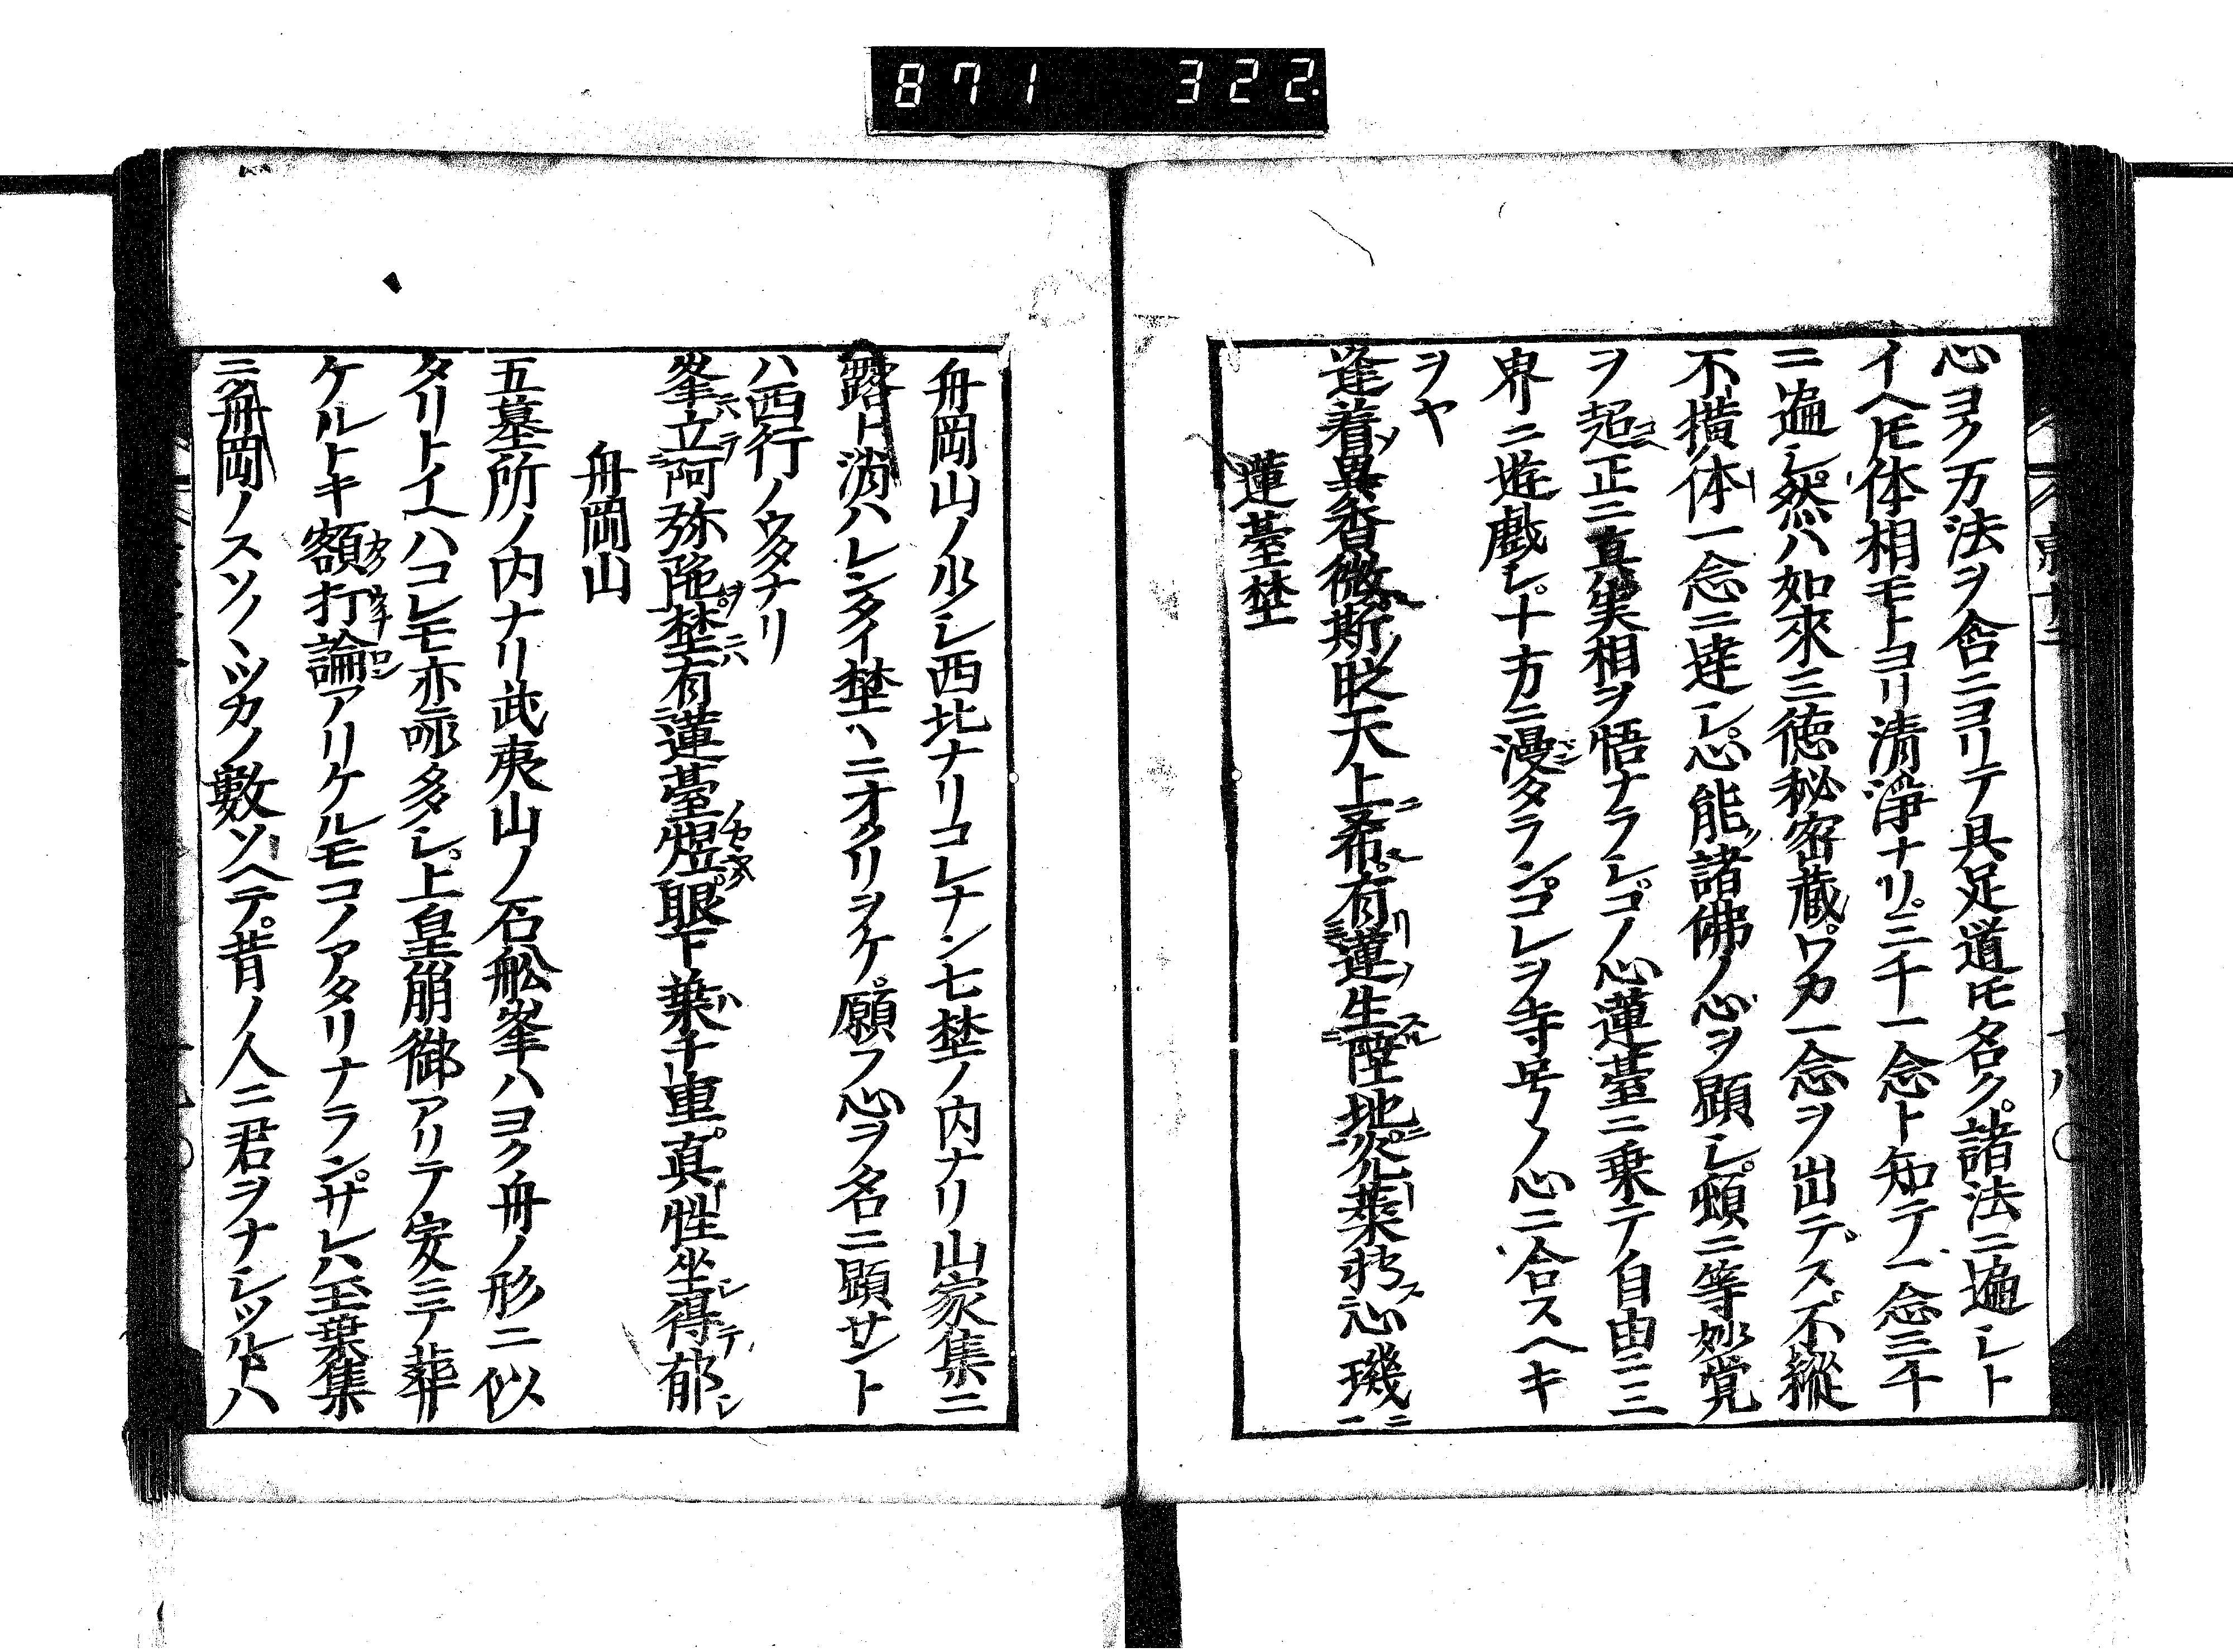 871 322.
心ヨク万法ヲ含ニヨリテ具足道ト名ク諸法ニ遍シト
イヘ𪜈体相モトヨリ清淨ナリ三千一念ト知テ一念三千
ニ遍シ然ハ如來三徳秘密蔵ワカ一念ヲ出デス不縱
不横体一念ニ達シ心能諸佛ノ心ヲ顕シ頓ニ等妙覚
ヲ超正ニ真実相ヲ悟ナラシコノ心蓮臺ニ乗テ自由ニ三
界ニ遊戯シ十方ニ漫タランコレヲ寺号ノ心ニ合スヘキ
ヲヤ
逢着異香微斯眺天上希有蓮生陸地化葉移心璣
蓮臺埜
舟岡山ノ少シ西北ナリコレナン七埜ノ内ナリ山家集ニ
露ト消ハレンタイ埜ハニオクリヲケ願フ心ヲ名ニ顕サント
ハ西行ノウタナリ
峯立阿弥陁埜有蓮臺煜眼下葉千重真性坐得郁
舟岡山
五墓所ノ内ナリ武夷山ノ石舩峯ハヨク舟ノ形ニ似
タリトイヘハコレモ亦哌多シ上皇崩御アリテ安ニテ葬
ケルトキ額打論アリケルモコノアタリナランサレハ玉葉集
ニ舟岡ノスソノヽツカノ數ソヘテ昔ノ人ニ君ヲナシツルトハ